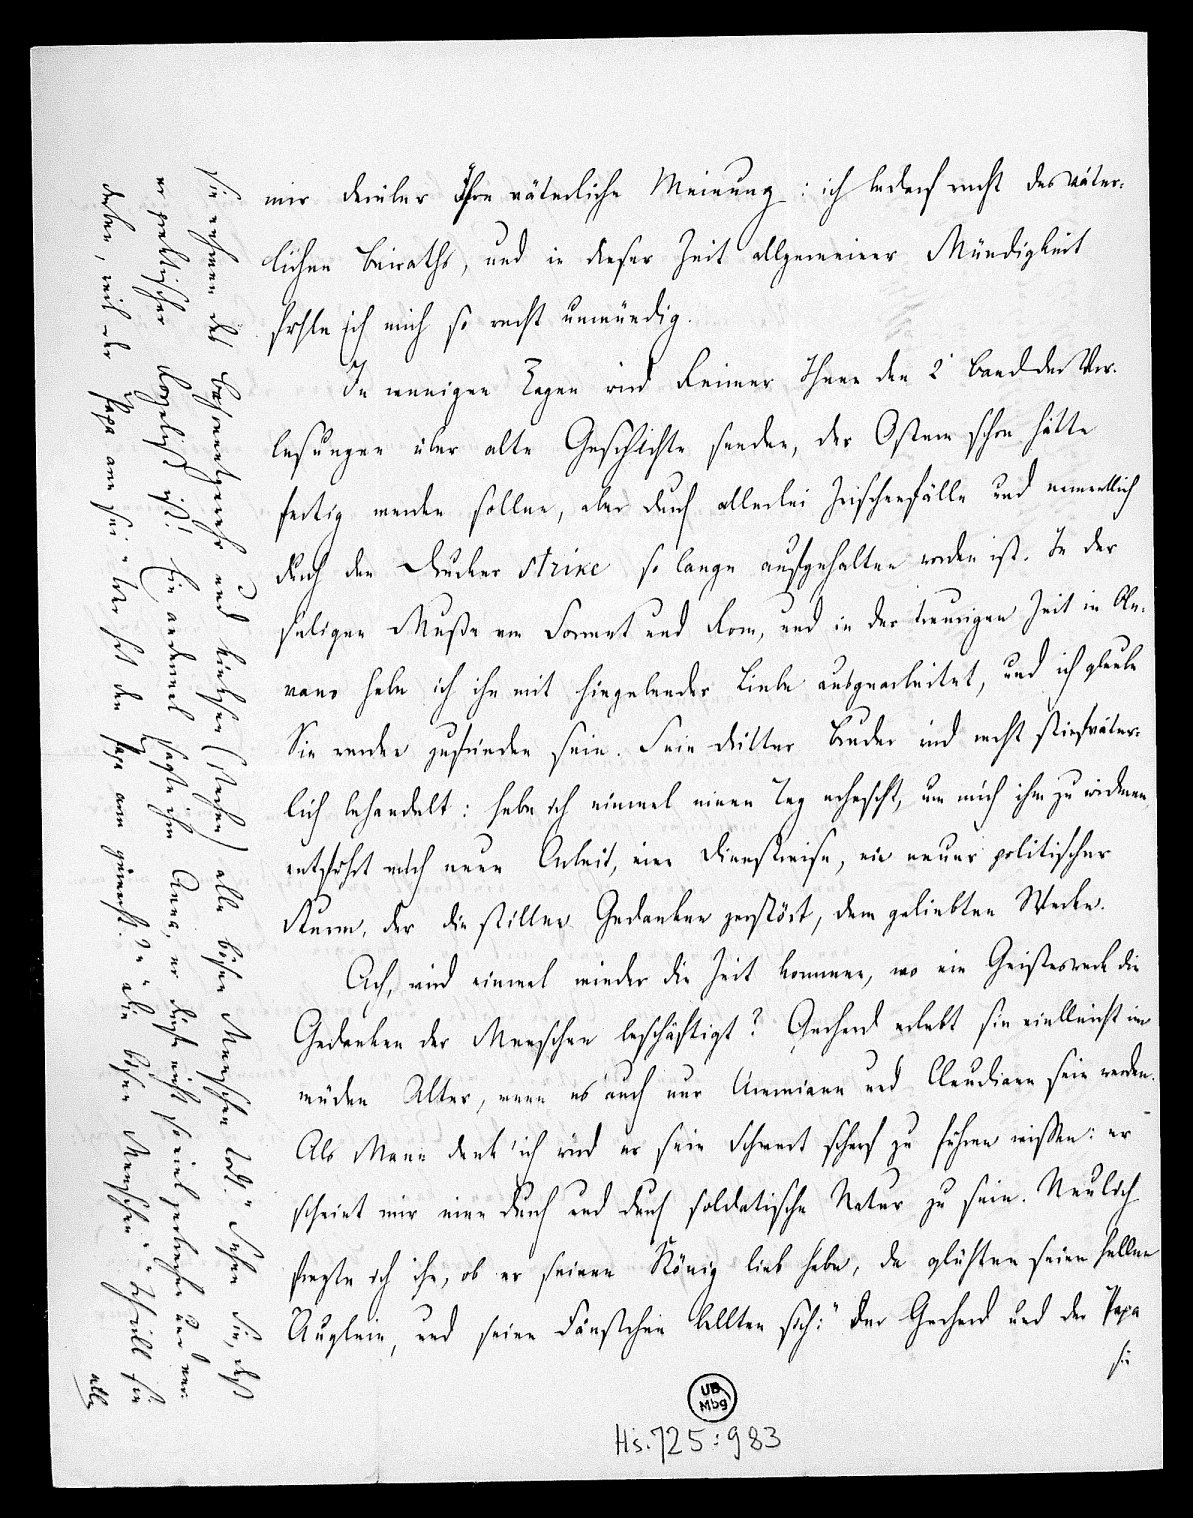 mir darüber Ihre väterliche Meinung: ich bedarf recht des väter-
lichen Beiraths, und in dieser Zeit allgemeiner Mündigkeit
fühle ich mich so recht unmündig.
In wenigen Tagen wird Reimer Ihnen den 2 Band der Vor-
lesungen über alte Geschichte senden, der Ostern schon hätte
fertig werden sollen, aber durch allerlei Zwischenfälle und namentlich
durch den Drucker strike so lange aufgehalten worden ist. In der
seligen Muße von Sorrent und Rom, und in der traurigen Zeit in Ole-
vano habe ich ihn mit hingebender Liebe ausgearbeitet, und ich glaube
Sie werden zufrieden sein. Sein dritter Bruder wird recht stiefväter-
lich behandelt: habe ich einmal einen Tag erhascht, um mich ihm zu widmen
entführt mich neue Arbeit, eine Dienstreise, ein neuer politischer
Sturm, der die stillen Gedanken zerstört, dem geliebten Werke.
Ach, wird einmal wieder die Zeit kommen, wo ein Geisteswerk die
Gedanken der Menschen beschäftigt? Gerhard erlebt sie vielleicht im
müden Alter, wenn es auch nur Ammiane und Claudiane sein werden.
Als Mann denk' ich wird er sein Schwert scharf zu führen wissen: er
scheint mir eine durch und durch soldatische Natur zu sein. Neulich
fragte ich ihn, ob er seinen König lieb habe, da glühten seine hellen
Äuglein, und seine Fäustchen ballten sich: „Der Gerhard und der Papa
sie
Sie nehmen das Bajonetgewehr und (stechen) alle bösen Menschen todt." Sehen Sie, daß
er praktischer Royalist ist! Ein andermal sagte ihm Anna, er dürfe nicht so viel zerbrechen und ver-
derben, weil der Papa arm sei „Wer hat den Papa arm gemacht?" „Die bösen Menschen." „Ich will sie
alle
UB
Mbg
Hs. 725:983